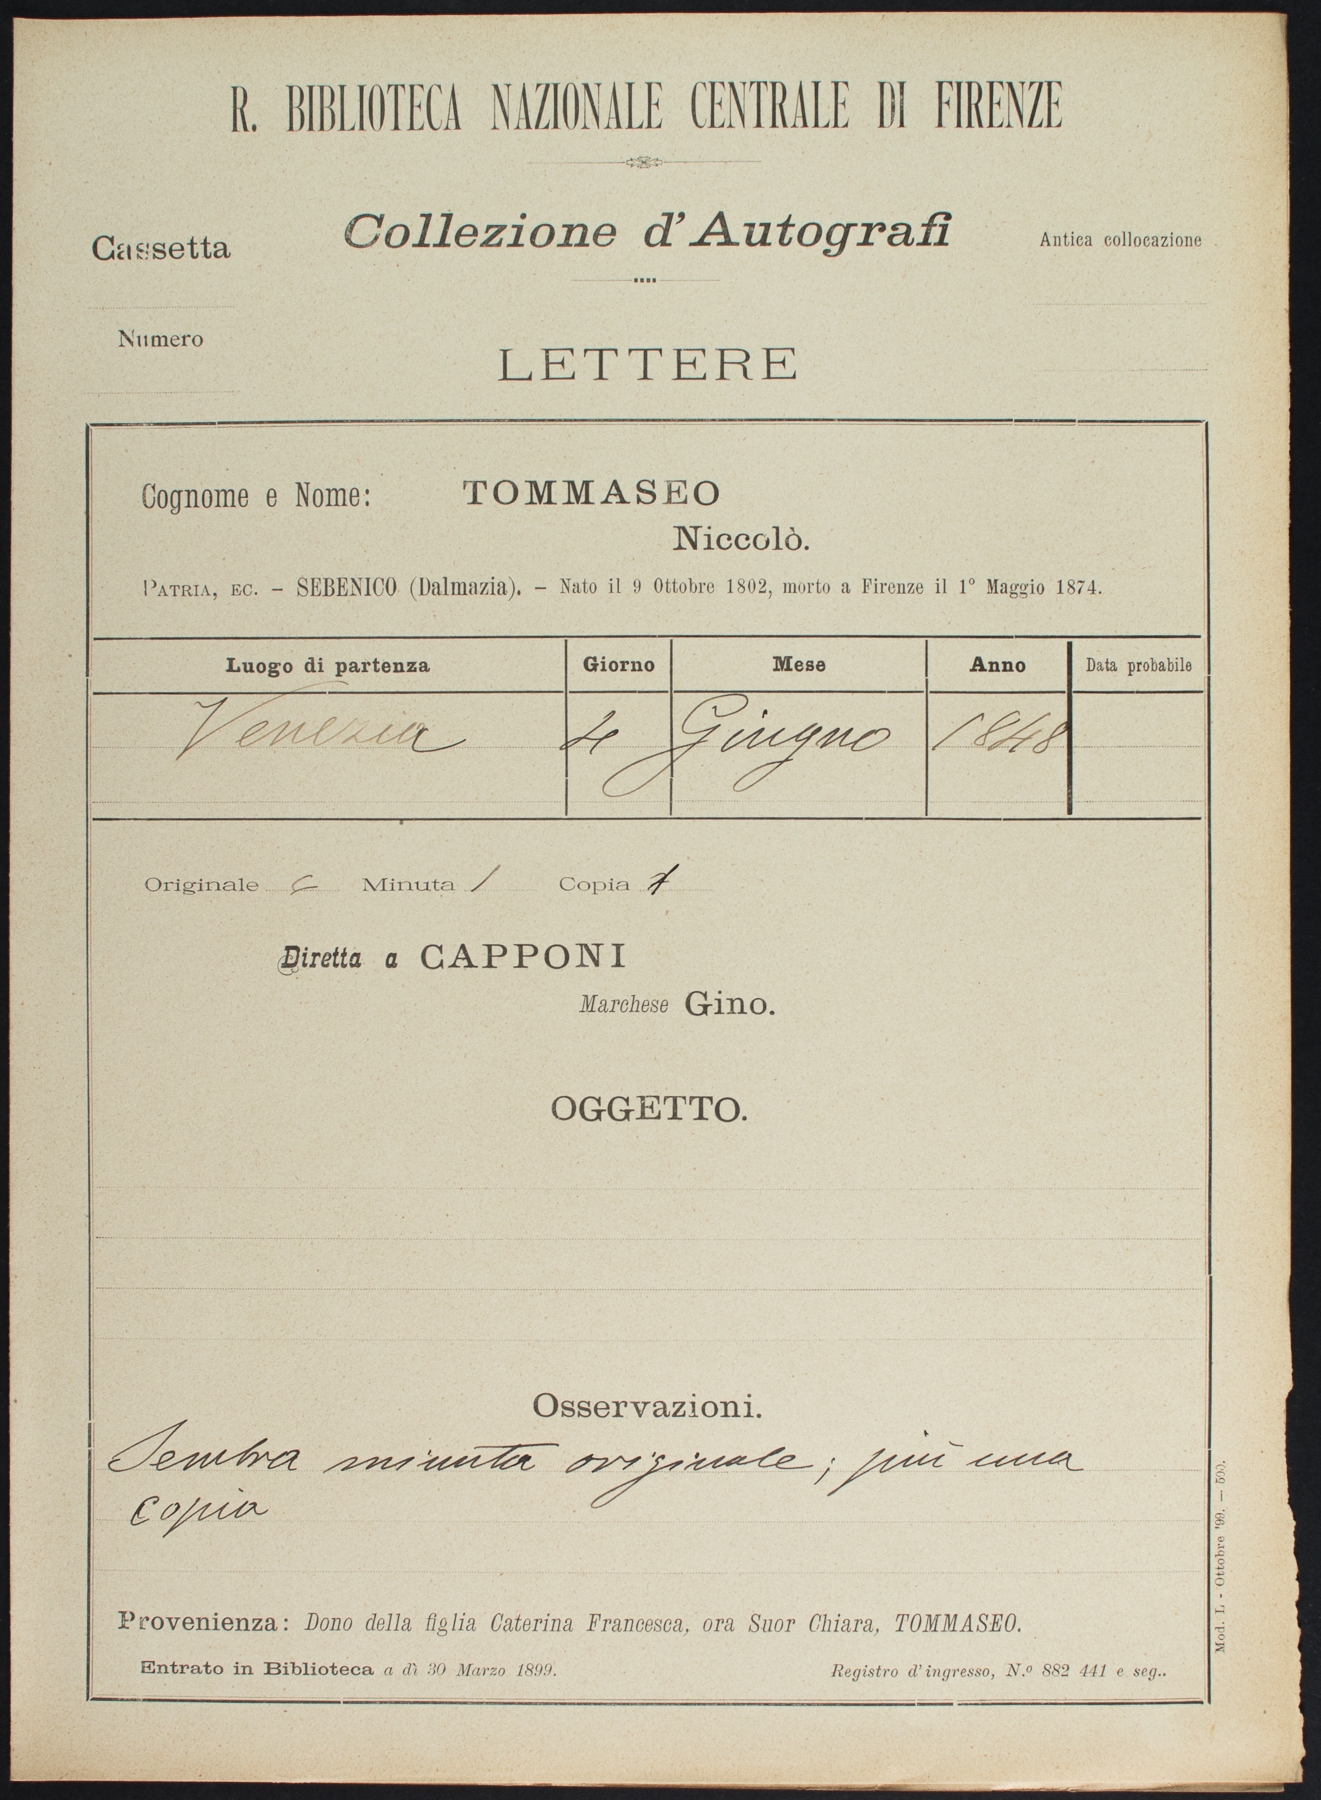 R. BIBLIOTECA NAZIONALE CENTRALE DI FIRENZE
Cassetta
Collezione d'Autografi
Antica collocazione
Numero
LETTERE
Cognome e Nome: TOMMASEO
Niccolò.
PATRIA, EC. – SEBENICO (Dalmazia). – Nato il 9 Ottobre 1802, morto a Firenze il 1º Maggio 1874.
Luogo di partenza Giorno Mese Anno Data probabile
Venezia 4 Giugno 1848
Originale Minuta 1 Copia 1
Diretta a CAPPONI
Marchese Gino.
OGGETTO.
Osservazioni.
Sembra minuta originale; più una
copia
Provenienza: Dono della figlia Caterina Francesca, ora Suor Chiara, TOMMASEO.
Entrato in Biblioteca a dì 30 Marzo 1899. Registro d'ingresso, N.º 882 441 e seg..
Mod. L - Ottobre '99. — 500.